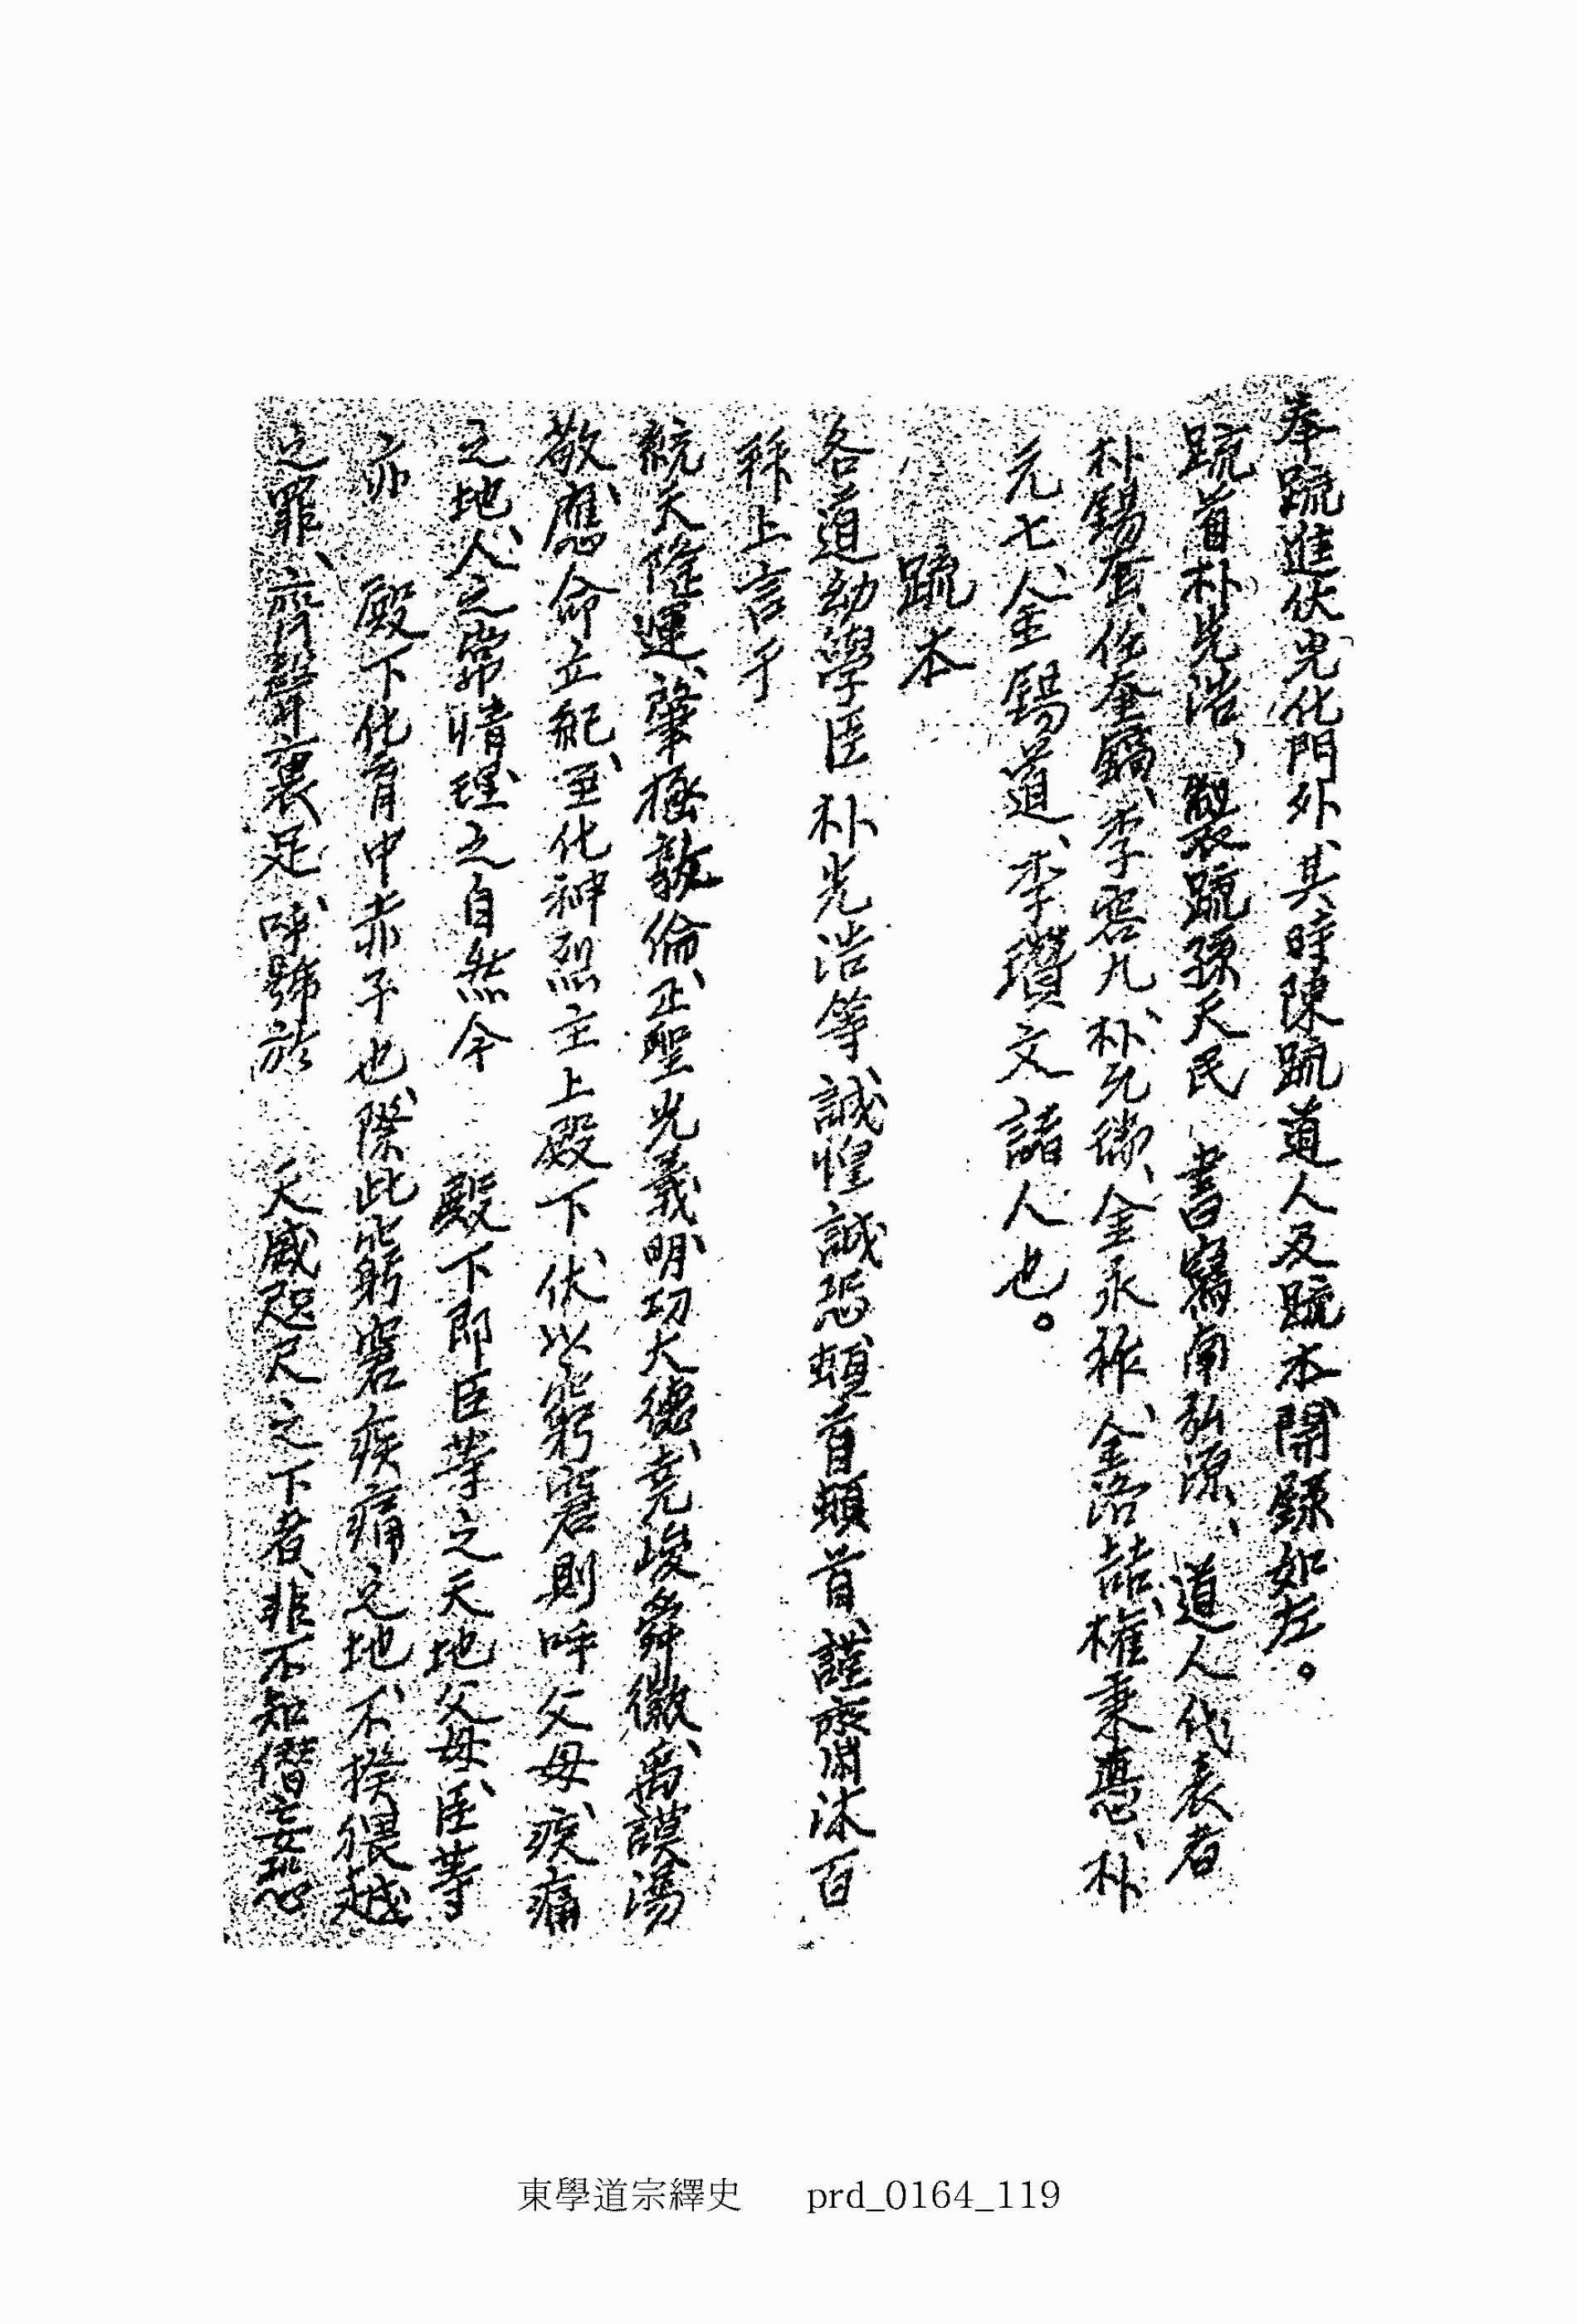 奉疏進伏光化門外、其時陳疏道人及疏本開錄如左。
疏首朴光浩、製疏孫天民 書寫南弘源、道人代表者
朴錫奎、任奎鎬、李容九、朴元徵、金永祚、金洛喆、權秉悳、朴
元七、金錫道、李瓚文諸人也。
疏本
各道幼學臣朴光浩等誠惶誠恐頓首頓首、謹齋沐百
拜上言于
統天隆運、肇極敦倫、正聖光義、明功大德、堯峻舜徽、禹謨湯
敬、應命立紀、至化神烈主上殿下、伏以窮窘則呼父母、疾痛
之地、人之常情、理之自然今 殿下即臣等之天地父母、臣等
亦 殿下化育中赤子也、際此窮窘疾痛之地、不揆猥越
之罪、齊聲裹足、呼號於 天威咫尺之下者、非不知僭妄恐
東學道宗繹史 prd_0164_119